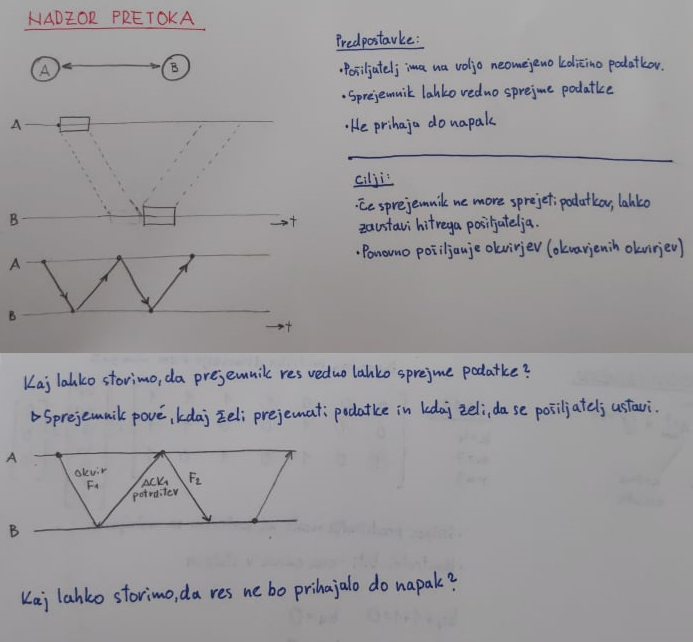 NADZOR PRETOKA
A
B
A
B
t
A
B
t
Predpostavke:
•Pošiljatelj ima na voljo neomejeno količino podatkov.
•Sprejemnik lahko vedno sprejme podatke
•Ne prihaja do napak
Cilji:
•Če sprejemnik ne more sprejeti podatkov, lahko
zaustavi hitrega pošiljatelja.
•Ponovno pošiljanje okvirjev (okvarjenih okvirjev)
Kaj lahko storimo, da prejemnik res vedno lahko sprejme podatke?
▷Sprejemnik pové, kdaj želi prejemati podatke in kdaj želi, da se pošiljatelj ustavi.
A
okvir
F1
ACK1
potrditev
F2
B
Kaj lahko storimo, da res ne bo prihajalo do napak?